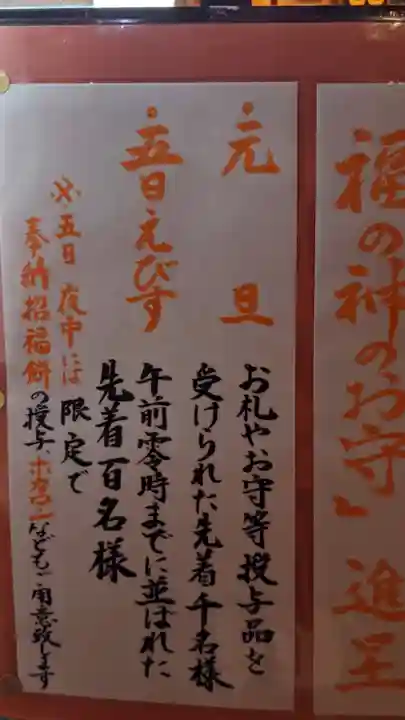 福の神のお守」進呈
・元旦
お札やお守等授与品を
受けられた先着千名様
・五日えびす
午前零時までに並ばれた
先着百名様
※五日夜中には限定で
奉納招福餅の授与、ホカロンなどもご用意致します